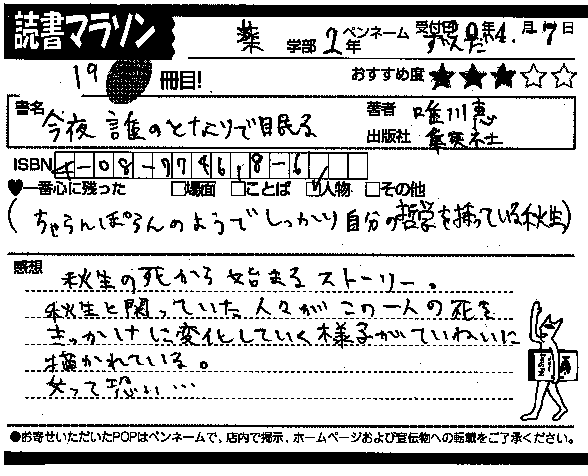 読書マラソン
薬 学部 2年 ペンネーム
受付日 0年4.月7日
19 冊目!
おすすめ度 ★★★☆☆
書名 今夜 誰のとなりで眠る
著者 唯川恵
出版社 集英社
ISBN 4-08-7746
♥一番心に残った □場面 □ことば ☑人物 □その他
(ちゃらんぽらんのようでしっかり自分の哲学を持っている秋生)
感想 秋生の死から始まるストーリー。
秋生と関っていた人々がこの一人の死を
きっかけに変化していく様子がていねいに
描かれている。
女って恐い…
●お寄せいただいたPOPはペンネームで、店内で掲示、ホームページおよび宣伝物への転載をご了承ください。